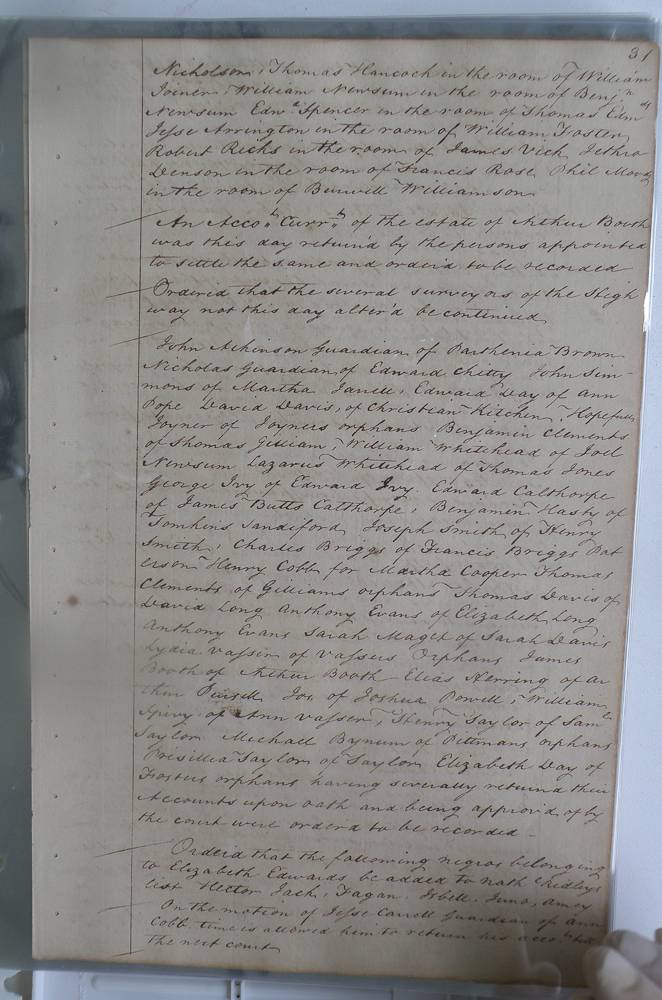 31
Nicholson, Thomas Hancock in the room of William
Joiner, William Newsum in the room of Benjn
Newsum Edn Spencer in the room of Thomas Edmds
Jesse Arrington in the room of William Foster
Robert Ricks in the room of James Vick Jethro
Denson in the room of Francis Rose Phil Moody
in the room of Burwell Williamson
An Accots Currts of the estate of Arthur Booth
was this day return'd by the persons appointed
to settle the same and order'd to be recorded
Ordered that the several surveyors of the High
way not this day alter'd be continued
John Atkinson Guardian of Parthenia Brown
Nicholas Guardian of Edward Chitty John Sim-
mons of Martha Janell, Edward Day of Ann
Pope David Davis, of Christian Kitchen, Hopefull
Joyner of Joyners orphans Benjamin Clements
of Thomas Gilliam, William Whitehead of Joel
Newsum Lazarus Whitehead of Thomas Jones
George Ivy of Edward Ivy. Edward Calthorpe
of James Butts Calthorpe, Benjamin Hasty of
Tomkins Sandiford Joseph Smith of Henry
Smith, Charles Briggs of Francis Briggs Pat
erson Henry Cobb for Martha Cooper Thomas
Clements of Gilliams orphans Thomas Davis of
David Long Anthony Evans of Elizabeth Long
Anthony Evans Sarah Maget of Sarah Davis
Lydia Vasser of Vassers Orphans James
Booth of Arthur Booth Elias Herring of Ar
thur Jos. of Joshua Powell, William
Spivy of Ann Vasser, Henry Taylor of Saml
Taylor Michall Bynum of Pittmans orphans
Prisillia Taylor of Taylor Elizabeth Day of
Fosters orphans having severally returnd their
Accounts upon oath and being approv'd of by
the court were orderd to be recorded -
Orderd that the following negroes belonging
to Elizabeth Edwards be added to Nath Ridleys
list Hector Jack, Fagan Isbell, Juno, Amey
On the motion of Jesse Carrell Guardian of Ann
Cobb time is allowed him to return his accots till
the next court